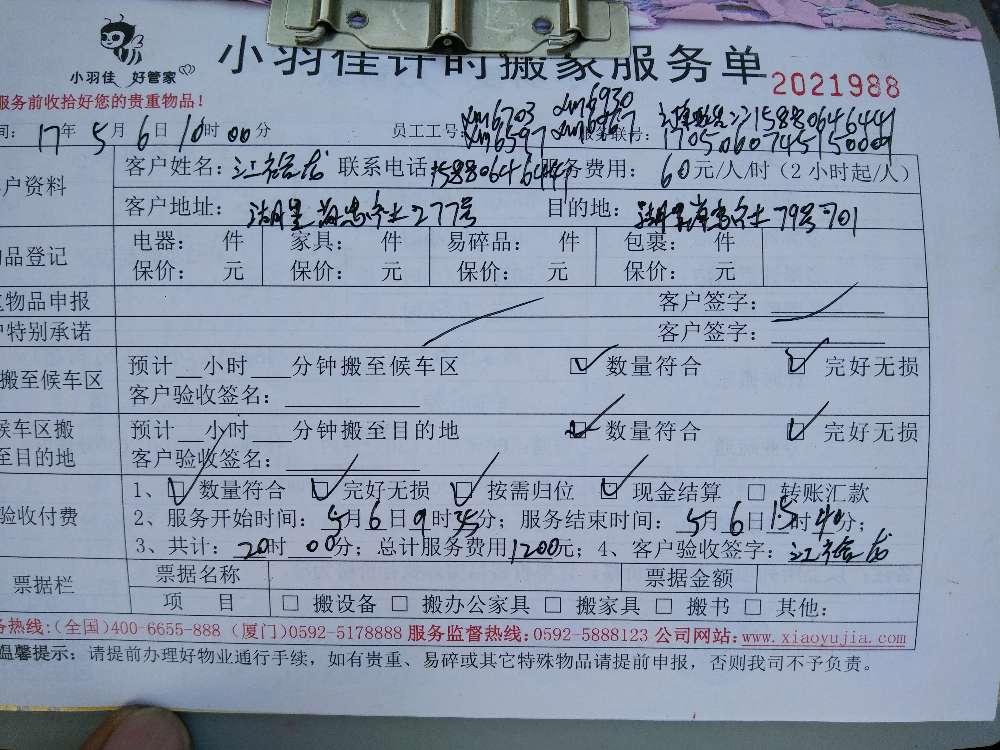 小羽佳 好管家
小羽佳计时搬家服务单
2021988
服务前收拾好您的贵重物品！
间：17年5月6日10时00分 员工工号： xm6703 xm6930 服务联号：
xm6597 17050607459150009
户资料 客户姓名： 联系电话：15880646449 服务费用：60元/人/时（2小时起/人）
客户地址：湖里 277号 目的地：湖里 79号701
品登记 电器： 件 家具： 件 易碎品： 件 包裹： 件
保价： 元 保价： 元 保价： 元 保价： 元
物品申报 客户签字：
户特别承诺 客户签字：
搬至候车区 预计__小时___分钟搬至候车区 ☑ 数量符合 ☑ 完好无损
客户验收签名：
候车区搬至目的地 预计__小时___分钟搬至目的地 ☑ 数量符合 ☑ 完好无损
客户验收签名：
验收付费 1、☑ 数量符合 ☑ 完好无损 ☑ 按需归位 ☑ 现金结算 □ 转账汇款
2、服务开始时间：5月6日9时35分；服务结束时间：5月6日15时40分；
3、共计：20时00分；总计服务费用1200元；4、客户验收签字：
票据栏 票据名称 票据金额
项 目 □ 搬设备 □ 搬办公家具 □ 搬家具 □ 搬书 □ 其他：
务热线：（全国）400-6655-888（厦门）0592-5178888 服务监督热线：0592-5888123 公司网站：www.xiaoyujia.com
温馨提示：请提前办理好物业通行手续，如有贵重、易碎或其它特殊物品请提前申报，否则我司不予负责。